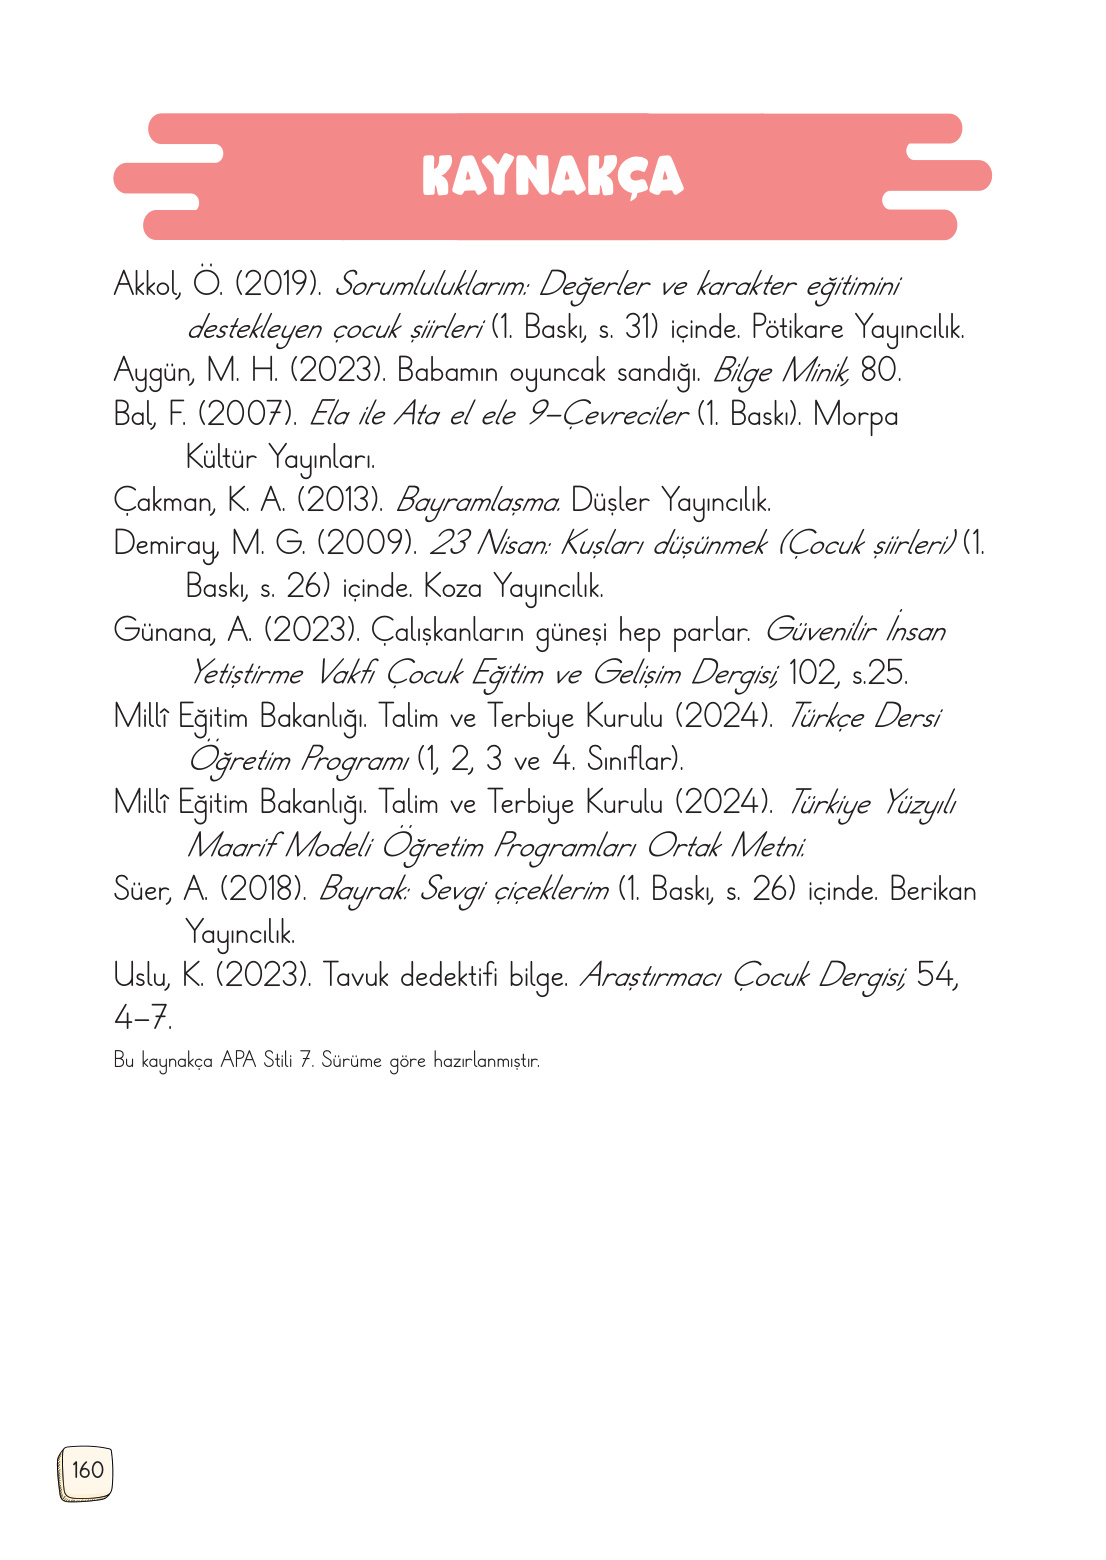 KAYNAKÇA
Akkol, Ö. (2019). Sorumluluklarım: Değerler ve karakter eğitimini
destekleyen çocuk şiirleri (1. Baskı, s. 31) içinde. Pötikare Yayıncılık.
Aygün, M. H. (2023). Babamın oyuncak sandığı. Bilge Minik, 80.
Bal, F. (2007). Ela ile Ata el ele 9–Çevreciler (1. Baskı). Morpa
Kültür Yayınları.
Çakman, K. A. (2013). Bayramlaşma. Düşler Yayıncılık.
Demiray, M. G. (2009). 23 Nisan: Kuşları düşünmek (Çocuk şiirleri) (1.
Baskı, s. 26) içinde. Koza Yayıncılık.
Günana, A. (2023). Çalışkanların güneşi hep parlar. Güvenilir İnsan
Yetiştirme Vakfı Çocuk Eğitim ve Gelişim Dergisi, 102, s.25.
Millî Eğitim Bakanlığı. Talim ve Terbiye Kurulu (2024). Türkçe Dersi
Öğretim Programı (1, 2, 3 ve 4. Sınıflar).
Millî Eğitim Bakanlığı. Talim ve Terbiye Kurulu (2024). Türkiye Yüzyılı
Maarif Modeli Öğretim Programları Ortak Metni.
Süer, A. (2018). Bayrak: Sevgi çiçeklerim (1. Baskı, s. 26) içinde. Berikan
Yayıncılık.
Uslu, K. (2023). Tavuk dedektifi bilge. Araştırmacı Çocuk Dergisi, 54,
4–7.
Bu kaynakça APA Stili 7. Sürüme göre hazırlanmıştır.
160